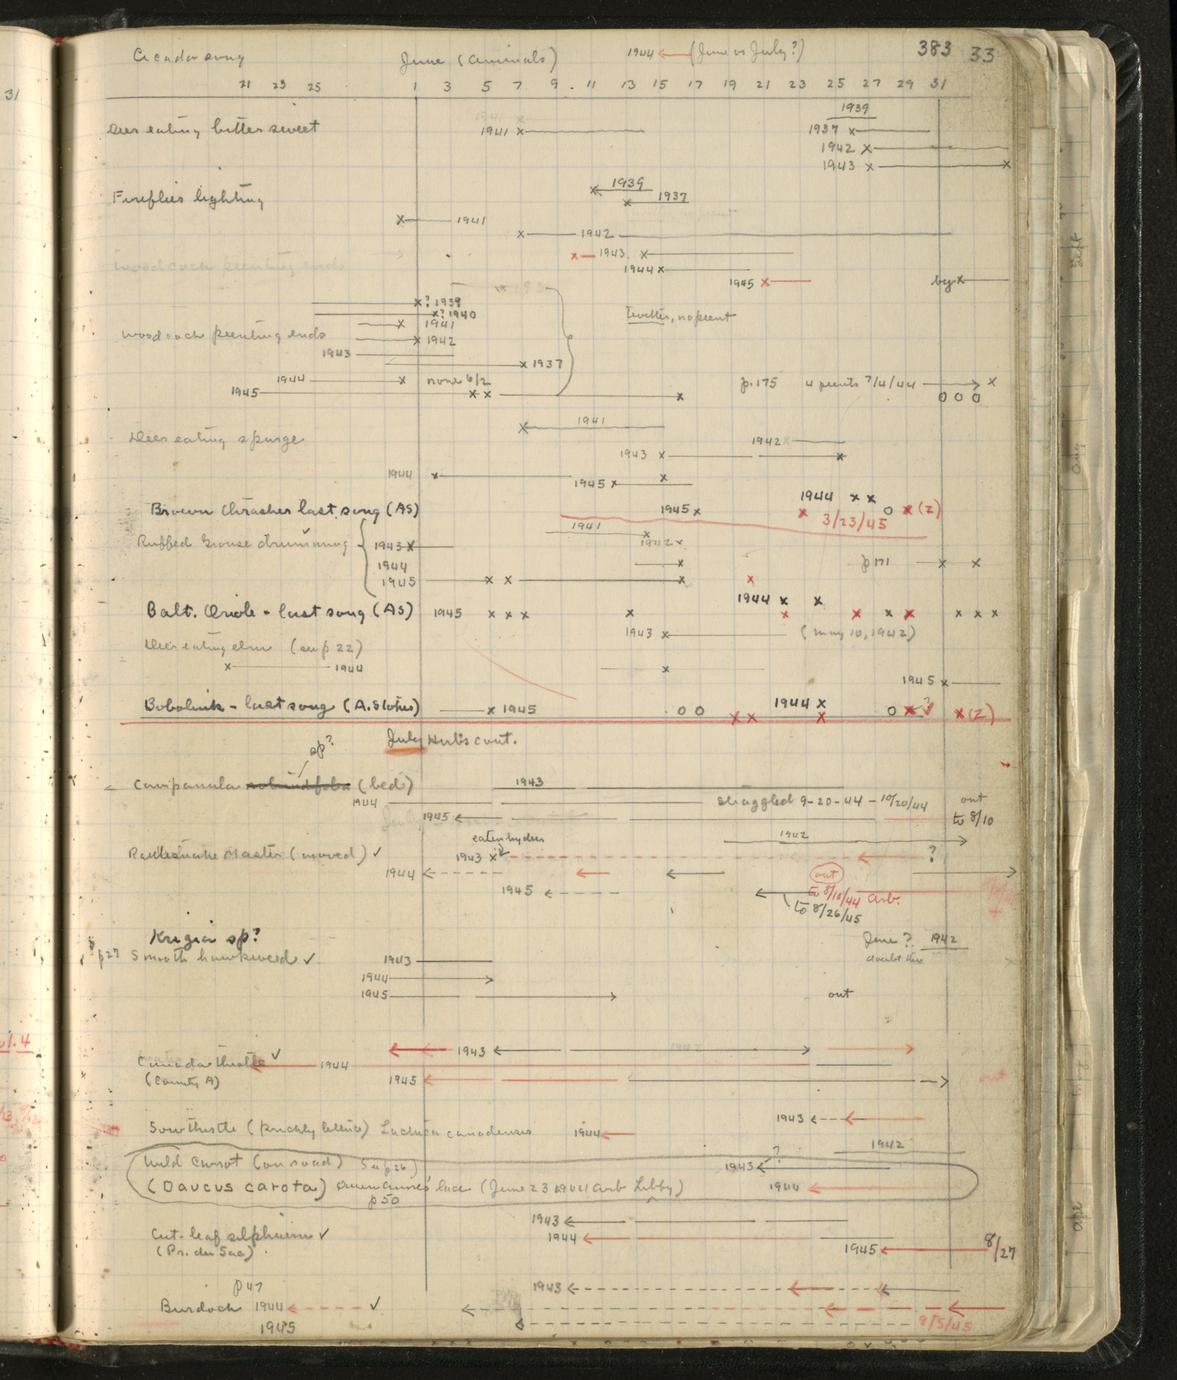 Cicada song June (animals) 1944 (June vs July?) 383 33
31
21 23 25 1 3 5 7 9 11 13 15 17 19 21 23 25 27 29 31
1939
Deer eating bittersweet 1941 1937
1942
1943
Fireflies lighting 1939
1937
1941
1942
1943
Woodcock peenting ends 1944
1945 by
? 1939
? 1940 twitter, no peent
Woodcock peenting ends 1941
1942
1943
1937
1944 none 6/2 p. 175 4 peents 7/4/44
1945
1941
Deer eating spurge 1942
1943
1944
1945
1944
Brown thrasher last song (AS) 1945 (2)
3/23/45
1941
Ruffed Grouse drumming 1943 1942
1944 p 171
1945
1944
Balt. Oriole - last song (AS) 1945
1943 (May 10, 1942)
Deer eating elm (see p 22)
1944
1945
Bobolink - last song (A.S. notes) 1945 1944 ? (2)
July Herbs cont.
sp?
Campanula (bed) 1943
1944 straggled 9-20-44 - 10/20/44 out
1945 to 8/10
eaten by deer 1942
Rattlesnake Master (moved) ✓ 1943 ?
1944 out
1945 to 8/18/44 Arb.
to 8/26/45
Krigia sp? June? 1942
p27 Smooth hawkweed ✓ 1943 doubt this
1944
1945 out
Vol. 4
Canada thistle ✓ 1943
1944
(County A) 1945 out
1943
Sow thistle (prickly lettuce) Lactuca canadensis 1944
1942
Wild Carrot (on road) See p 26) 1943 ?
(Daucus carota) Queen Anne's lace (June 23 1944 Arb Libby) 1944
p 50
1943
Cut-leaf silphium ✓ 1944
(Pr. du Sac) 1945 8/27
p 47 1943
Burdock 1944 ✓
1945 9/5/45